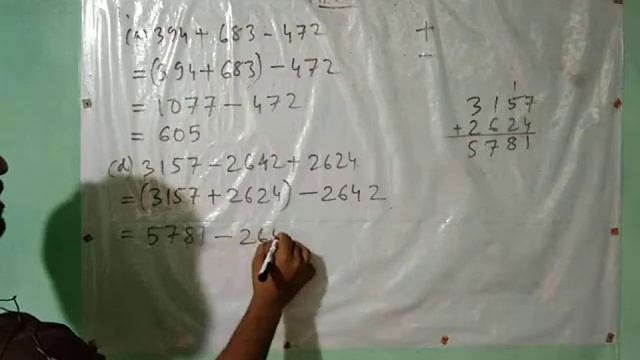 394 + 683 - 472
= (394 + 683) - 472
= 1077 - 472
= 605
(d) 3157 - 2642 + 2624
= (3157 + 2624) - 2642
= 5781 - 26
+
-
1
3157
+ 2624
5781